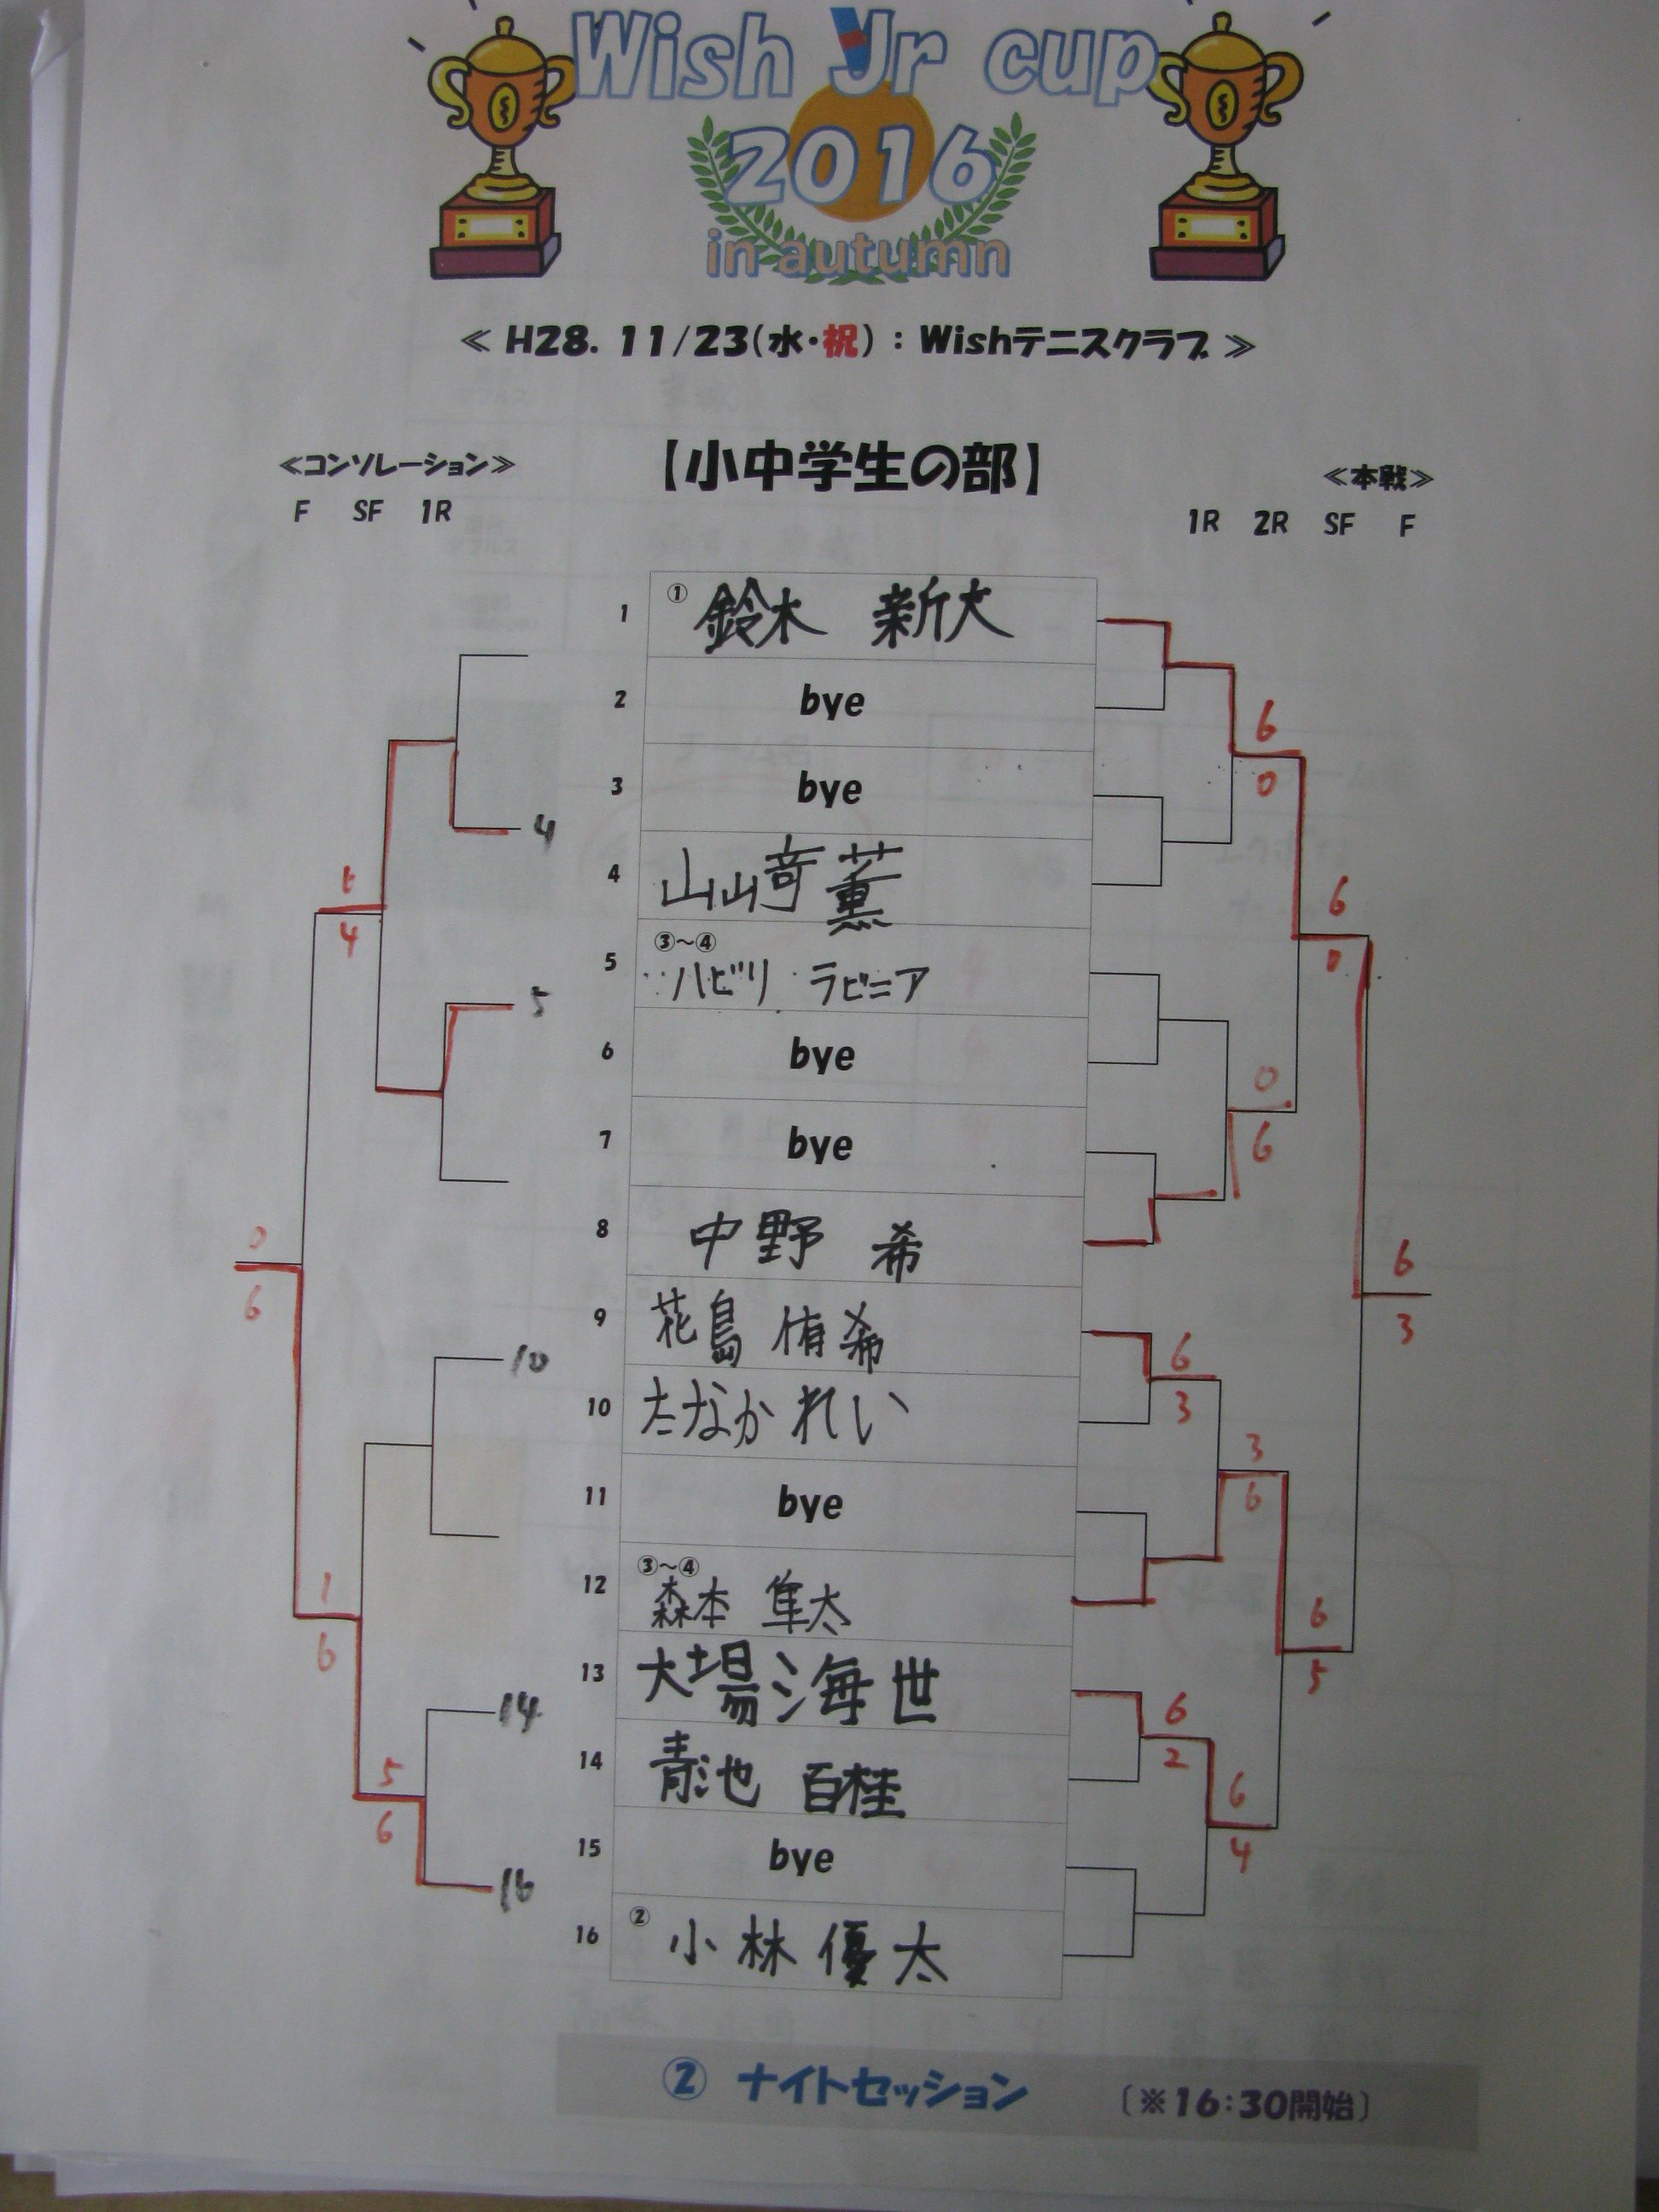 Wish Jr cup
2016
in autumn
≪ H28. 11/23(水・祝)：Wishテニスクラブ ≫
≪コンソレーション≫
【小中学生の部】
≪本戦≫
F SF 1R
1R 2R SF F
1 ① 鈴木 新大
2 bye
6
3 bye
0
4
4 山崎 薫
6
6
0
4
5 ③～④ ハビリ ラビニア
5
6 bye
0
7 bye
6
8 中野 希
0
6
6
3
9 花島 侑希
6
3
10
10 たなか れい
3
6
11 bye
12 ③～④ 森本 隼太
1
6
6
5
13 大場 海世
6
2
14
14 青池 百桂
5
6
6
4
15 bye
16
16 ② 小林 優太
② ナイトセッション
〔※16:30開始〕